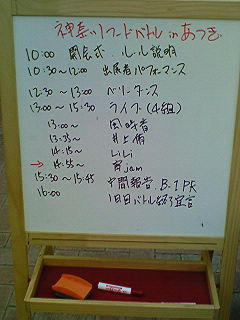 神奈川フードバトル in あつぎ
10:00 開会式・ルール説明
10:30~12:00 出展者パフォーマンス
12:30 ~ 13:00 ベリーダンス
13:00 ~ 15:30 ライブ(4組)
13:00~
13:35~ 井上侑
14:15~ LiLi
→ 14:55~ 宵jam
15:30 ~ 15:45 中間報告、B-1 PR
16:00 1日目バトル終了宣言